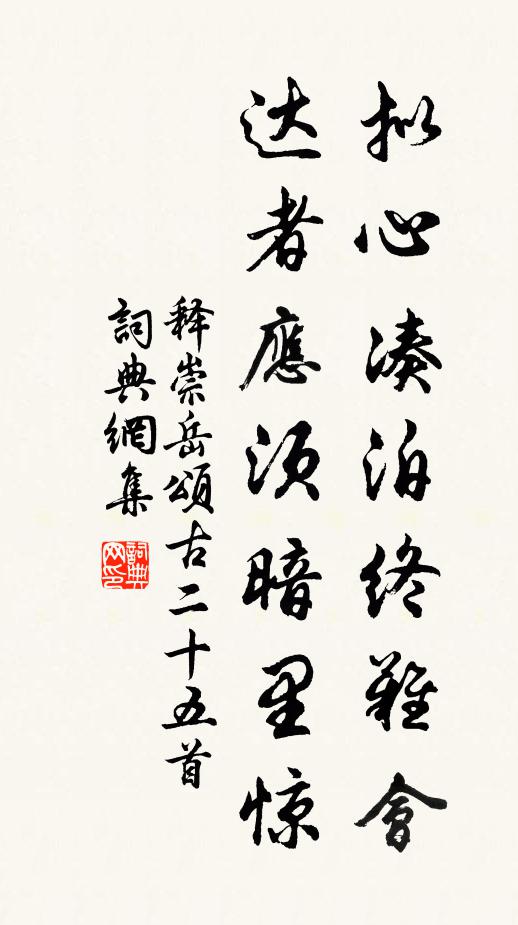 拟心凑泊终難會
达者應须暗里惊
释崇岳頌古二十五首
詞典網集
詞典
网印